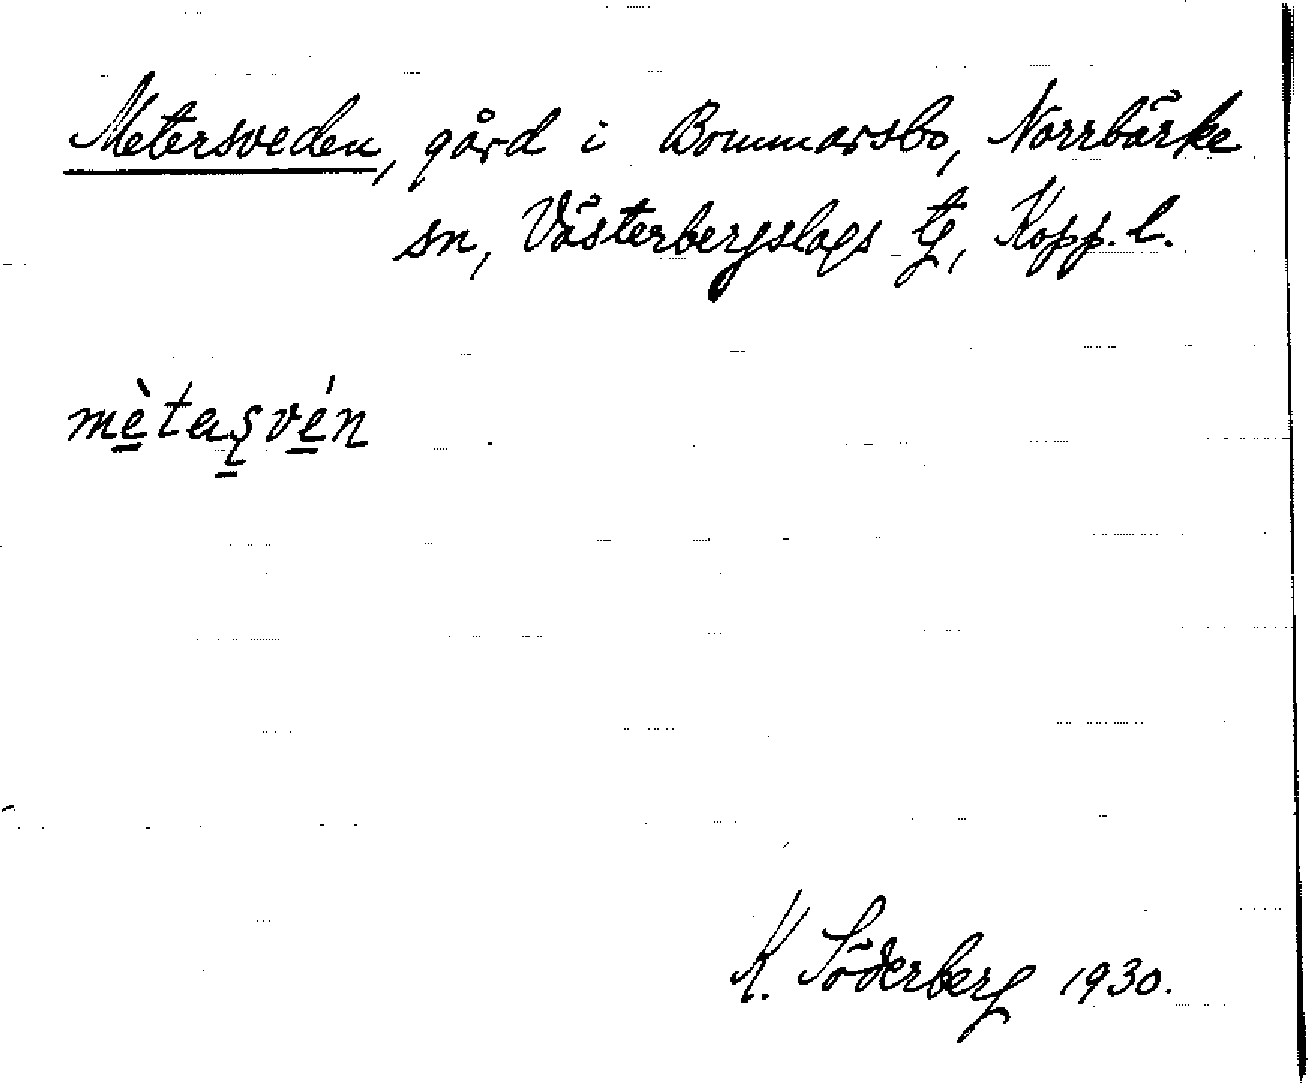 Metersveden, gård i Bommarsbo, Norrbärke
sn, Västerbergslags tg, Kopp. l.
mètaʂvén
K. Söderberg 1930.